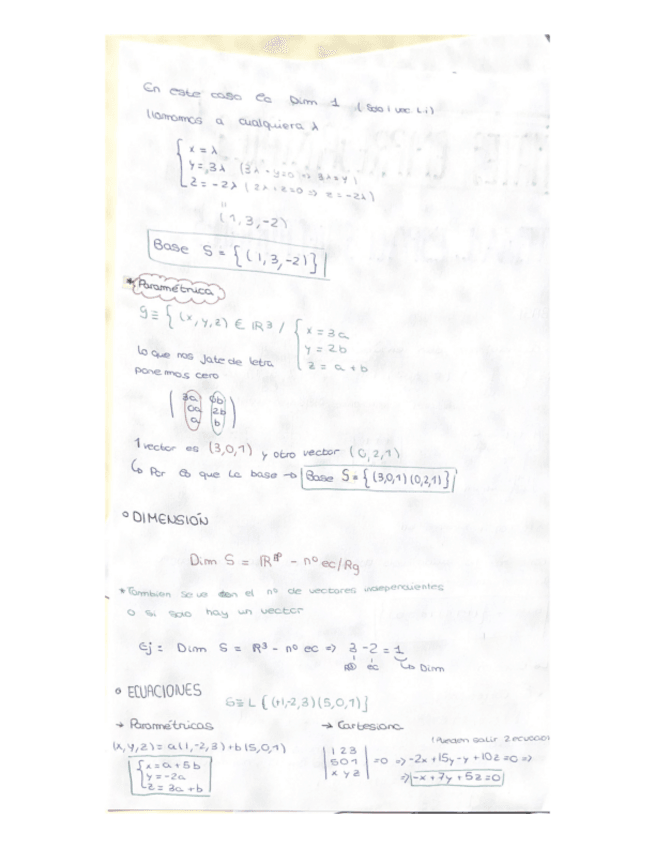 En este caso es Dim 1 (solo 1 vec L.i)
llamamos a cualquiera λ
x = λ
y = 3λ (3λ - y = 0 => 3λ = y)
z = -2λ (2λ + z = 0 => z = -2λ)
"
(1, 3, -2)
Base S = {(1, 3, -2)}
* Paramétrica
S ≡ { (x, y, z) € IR3 / { x = 3a
y = 2b
z = a + b
lo que nos falte de letra
ponemos cero
3a 0b
0a 2b
a b
1 vector es (3,0,1) y otro vector (0,2,1)
↳ Por eso que la base → Base S = { (3,0,1) (0,2,1) }
° DIMENSIÓN
Dim S = IRⁿ - nº ec/Rg
* Tambien se ve con el nº de vectores independientes
o si solo hay un vector
Ej: Dim S = IR3 - nº ec => 3 - 2 = 1
ec ↳ Dim
° ECUACIONES
S ≡ L { (+1,-2,3) (5,0,1) }
→ Paramétricas → Cartesiana
(Pueden salir 2 ecuacio
(x, y, z) = a(1,-2,3) + b(5,0,1)
1 2 3
5 0 1
x y z
= 0 => -2x + 15y - y + 10z = 0 =>
=> -x + 7y + 5z = 0
x = a + 5b
y = -2a
z = 3a + b